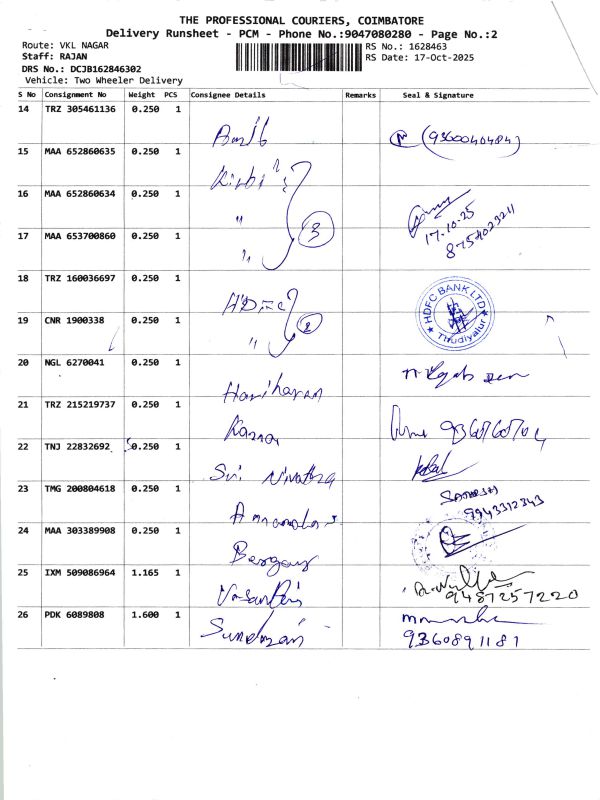 THE PROFESSIONAL COURIERS, COIMBATORE
Delivery Runsheet - PCM - Phone No.:9047080280 - Page No.:2
Route: VKL NAGAR
RS No.: 1628463
Staff: RAJAN
RS Date: 17-Oct-2025
DRS No.: DCJB162846302
Vehicle: Two Wheeler Delivery
S No Consignment No Weight PCS Consignee Details Remarks Seal & Signature
14 TRZ 305461136 0.250 1
(9360040484)
15 MAA 652860635 0.250 1
16 MAA 652860634 0.250 1 "
3
17.10.25
8754023211
17 MAA 653700860 0.250 1 "
18 TRZ 160036697 0.250 1 HDFC
HDFC BANK LTD
Thudiyalur
19 CNR 1900338 0.250 1 "
2
20 NGL 6270041 0.250 1 Hariharan
21 TRZ 215219737 0.250 1 Kannan
22 TNJ 22832692 0.250 1 Sri
23 TMG 200804618 0.250 1
9943312343
24 MAA 303389908 0.250 1
25 IXM 509086964 1.165 1
9487257220
26 PDK 6089808 1.600 1
9360891181